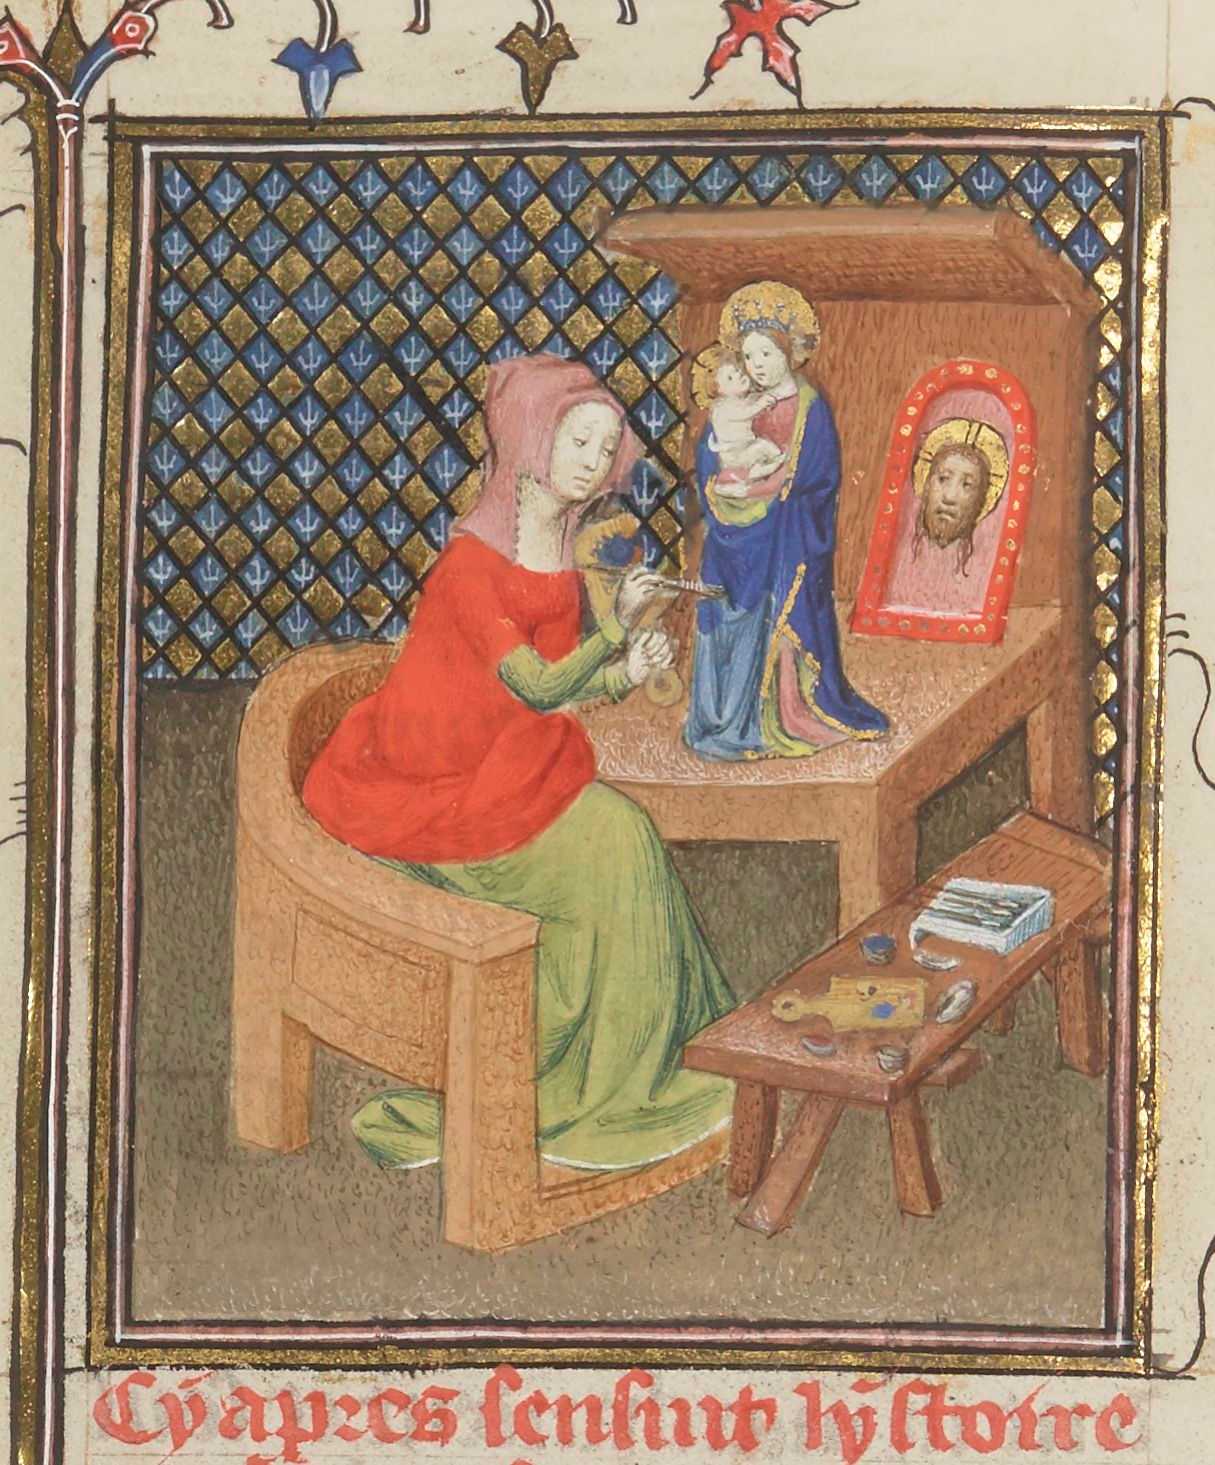 Cy apres sensuit hystoire